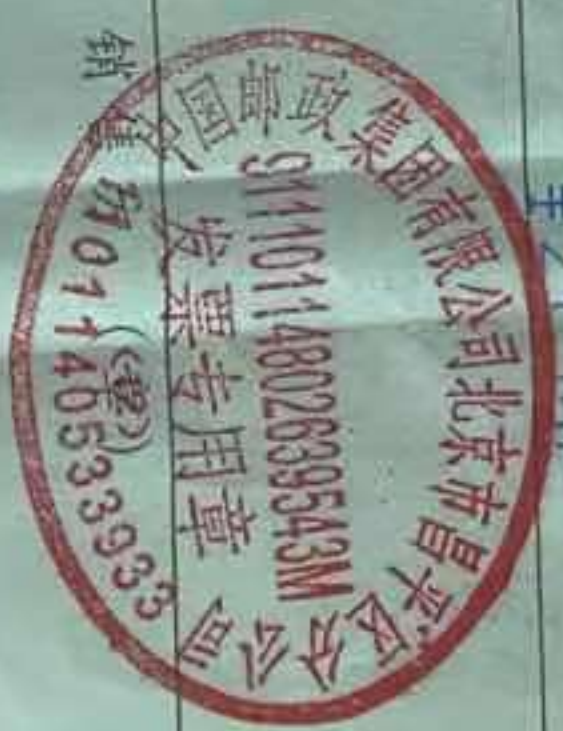 中国邮政集团有限公司北京市昌平区分公司
91110114802639543M
发票专用章
0114053393​3
销售方(章)